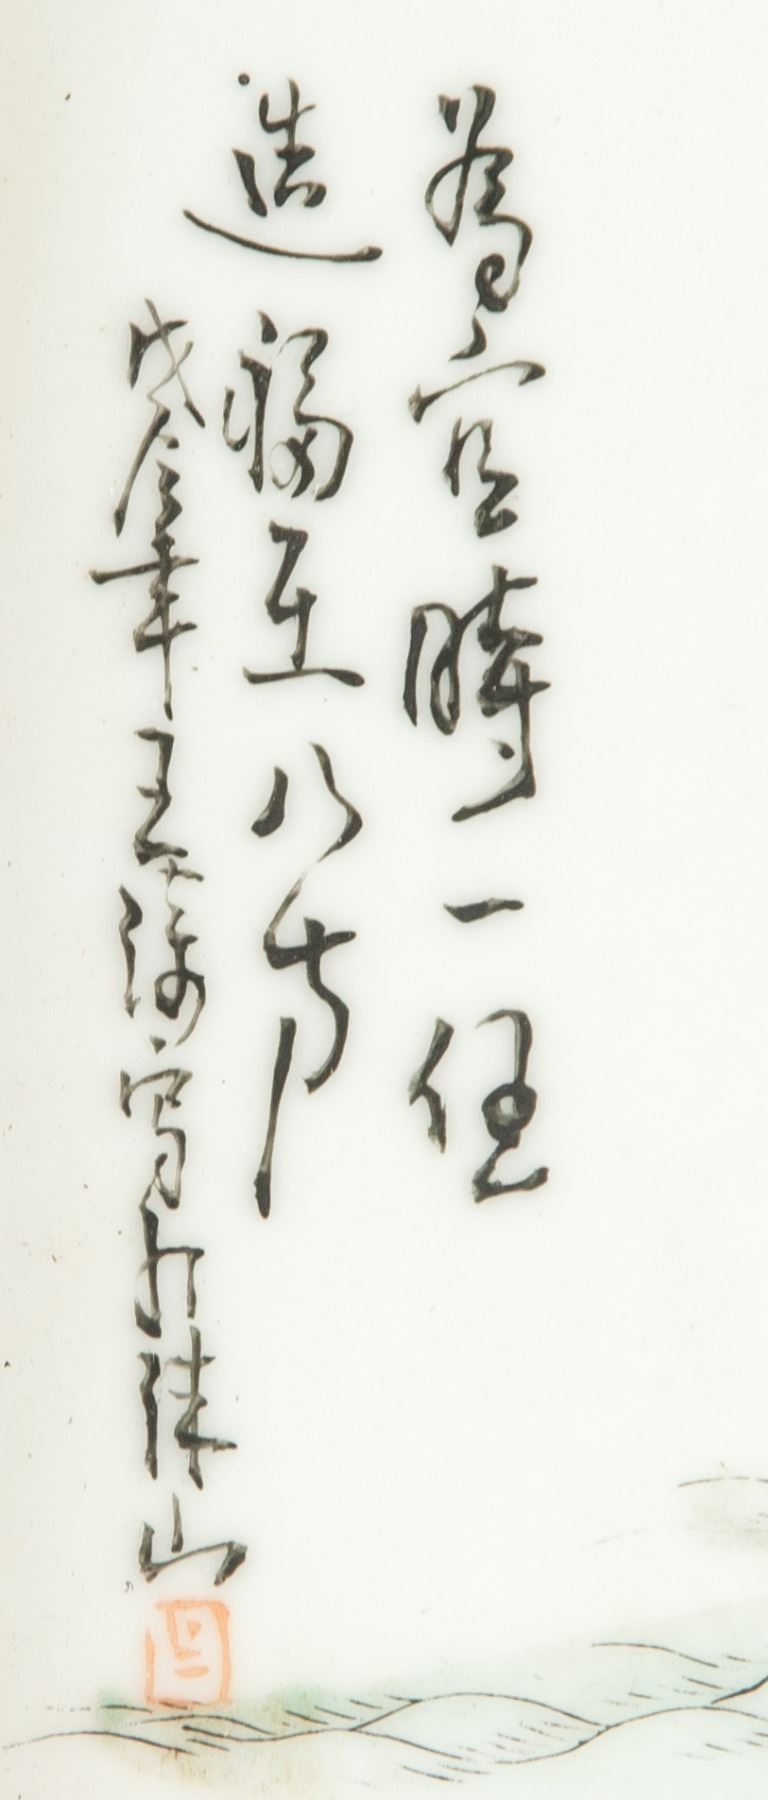 為官時一任
造福在八方
戊辰年王寫於珠山